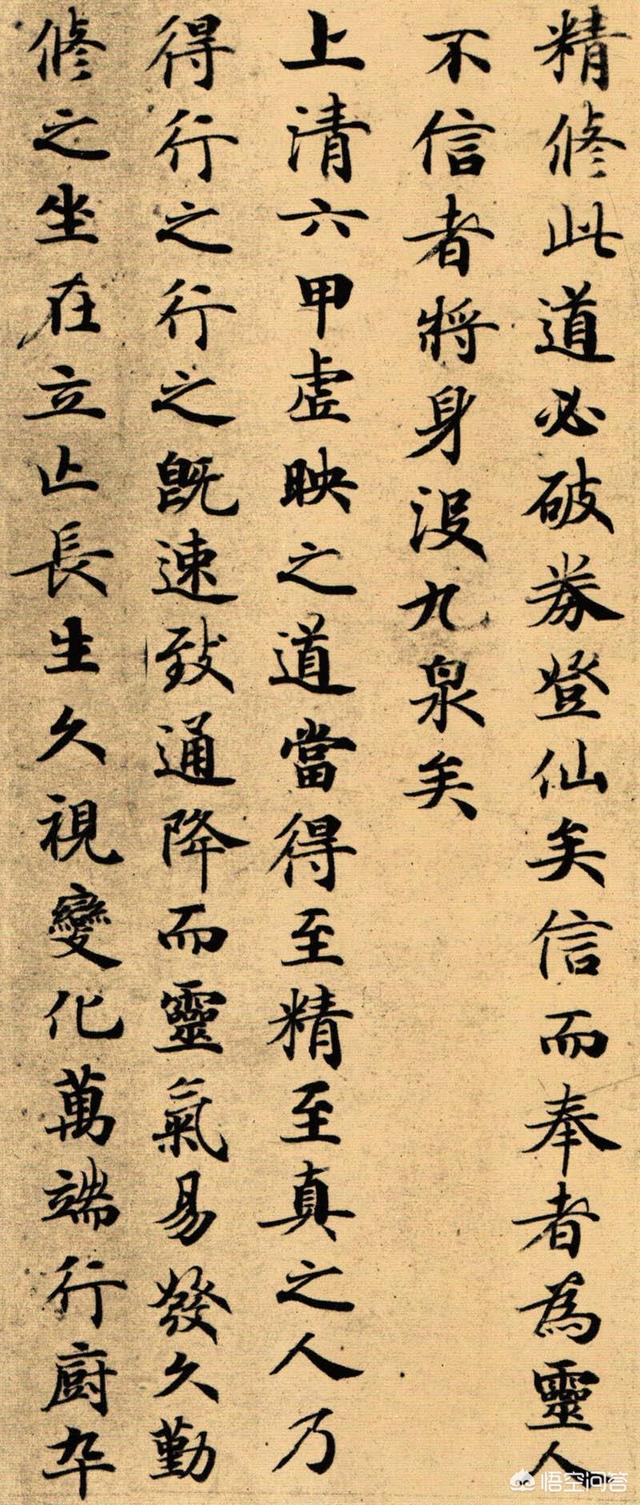 精修此道必破券登仙矣信而奉者為靈人
不信者將身没九泉矣
上清六甲虛映之道當得至精至真之人乃
得行之行之既速致通降而靈氣易發久勤
修之坐在立亡長生久視變化萬端行厨卒
悟空问答